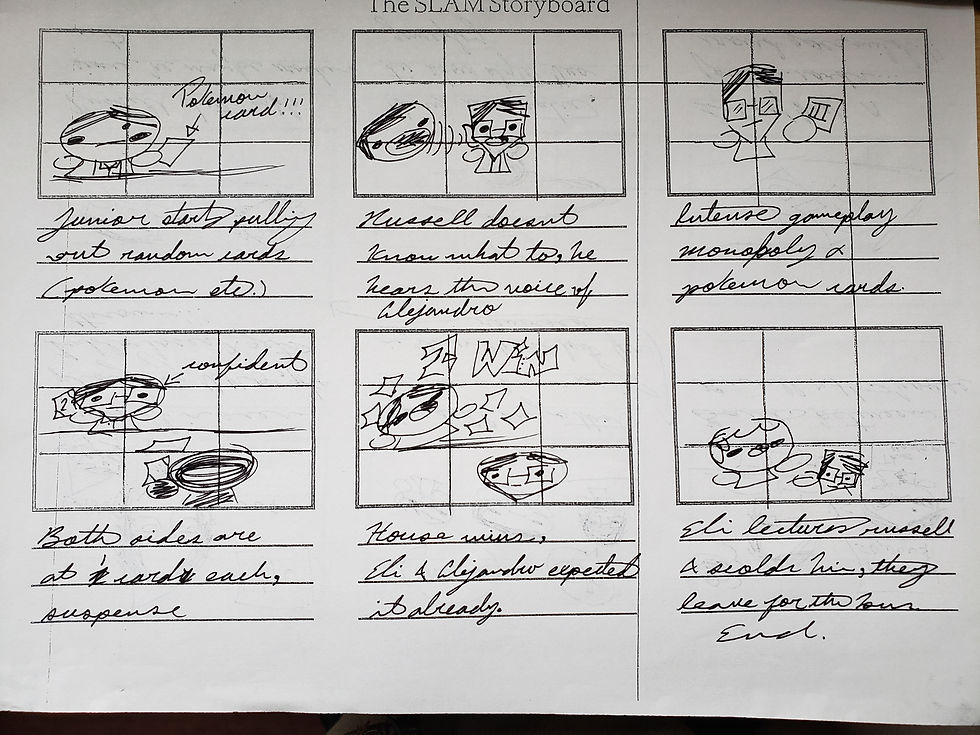 The SLAM Storyboard
Pokemon
card!!!
Junior starts pulling
out random cards
(pokemon etc.)
Russell doesnt
know what to, he
hears the voice of
Alejandro
Intense gameplay
monopoly &
pokemon cards.
confident
2
Both sides are
at 1 card each,
suspense
24 WIN
House wins,
Eli & Alejandro expected
it already.
Eli lectures russell
& scolds him, they
leave for the
End.